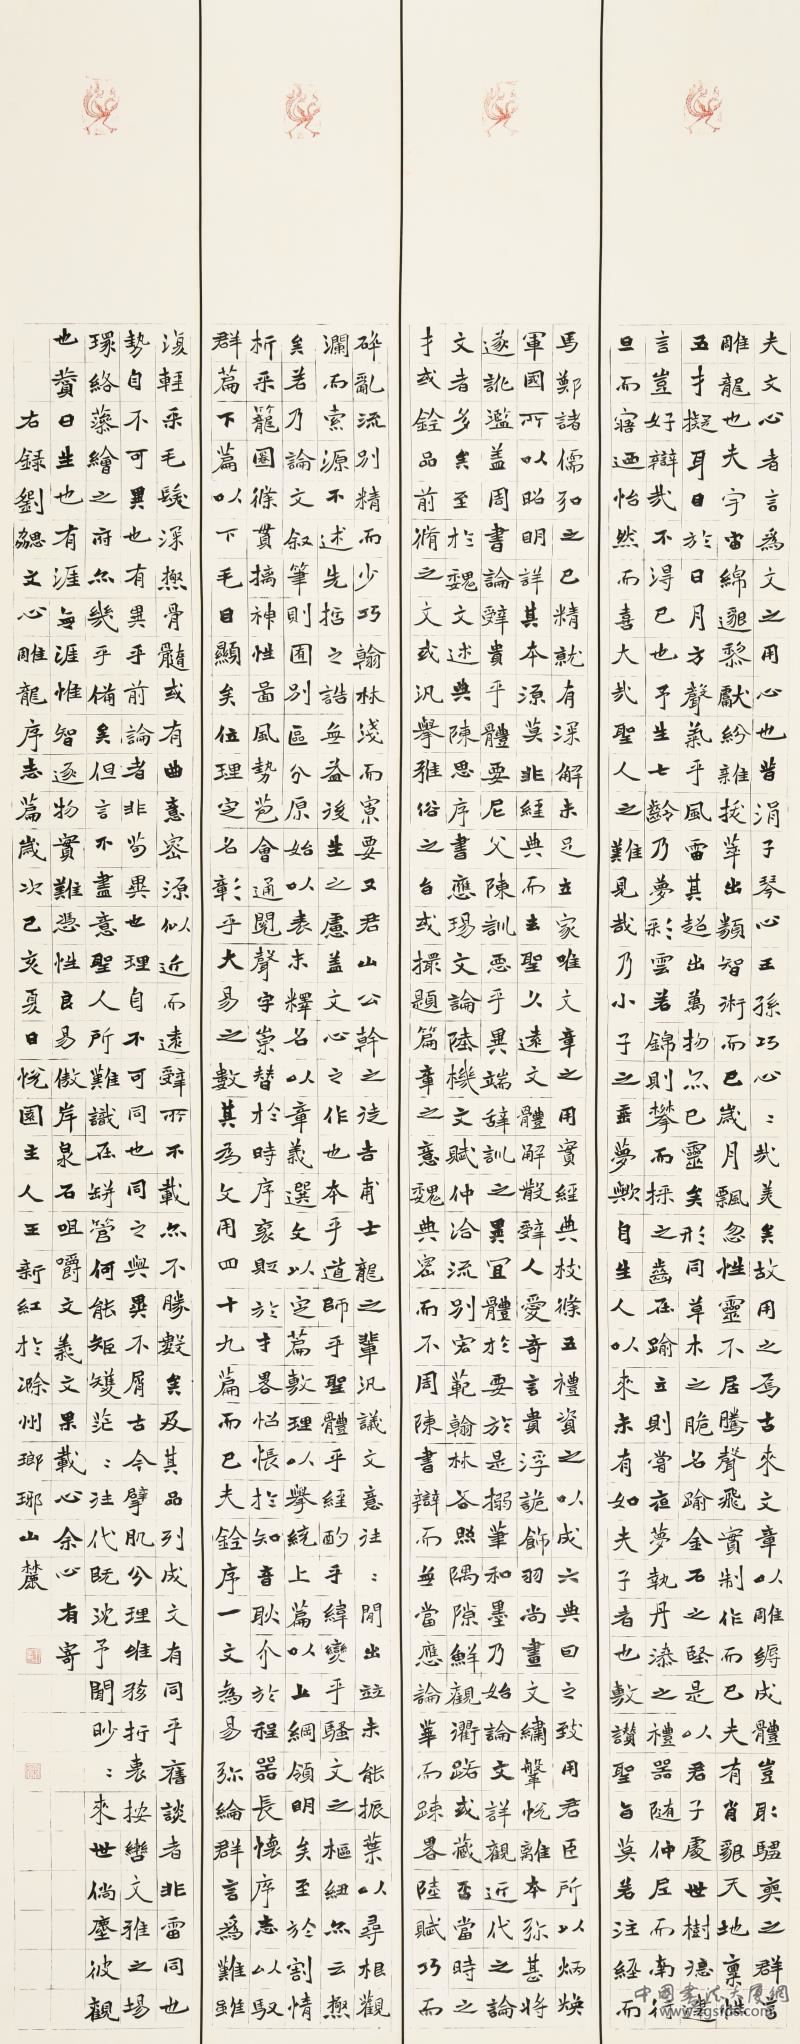 夫文心者言爲文之用心也昔涓子琴心王孫巧心〻哉美矣故用之焉古來文章以雕縟成體豈取騶奭之群言
雕龍也夫宇宙綿邈黎獻紛雜拔萃出類智術而已歲月飄忽性靈不居騰聲飛實制作而已夫有肖貌天地稟性
五才擬耳目於日月方聲氣乎風雷其超出萬物亦已靈矣形同草木之脆名踰金石之堅是以君子處世樹德建
言豈好辯哉不得已也予生七齡乃夢彩雲若錦則攀而採之齒在踰立則嘗夜夢執丹漆之禮器随仲尼而南行
旦而寤迺怡然而喜大哉聖人之難見哉乃小子之垂夢歟自生人以來未有如夫子者也敷讚聖旨莫若注經而
馬鄭諸儒弘之已精就有深解未足立家唯文章之用實經典枝條五禮資之以成六典因之致用君臣所以炳煥
軍國所以昭明詳其本源莫非經典而去聖久遠文體解散辭人愛奇言貴浮詭飾羽尚畫文繡鞶帨離本弥甚將
遂訛濫蓋周書論辭貴乎體要尼父陳訓惡乎異端辞訓之異宜體於要於是搦筆和墨乃始論文詳觀近代之論
文者多矣至於魏文述典陳思序書應瑒文論陸機文賦仲洽流別宏範翰林各照隅隙鮮觀衢路或臧否當時之
才或銓品前脩之文或汎舉雅俗之旨或撮題篇章之意魏典密而不周陳書辯而無當應論華而疎畧陸賦巧而
碎亂流別精而少巧翰林淺而寡要又君山公幹之徒吉甫士龍之輩汎議文意往〻間出並未能振葉以尋根觀
瀾而索源不述先哲之誥無益後生之慮蓋文心之作也本乎道師乎聖體乎經酌乎緯變乎騷文之樞紐亦云極
矣若乃論文叙筆則囿別區分原始以表末釋名以章義選文以定篇敷理以舉統上篇以上綱領明矣至於割情
析采籠圈條貫摛神性圖風勢苞會通閱聲字崇替於時序褒貶於才畧怊悵於知音耿介於程器長懷序志以馭
群篇下篇以下毛目顯矣位理定名彰乎大易之數其爲文用四十九篇而已夫銓序一文為易弥綸群言爲難雖
復輕采毛髮深極骨髓或有曲意密源似近而遠辭所不載亦不勝數矣及其品列成文有同乎舊談者非雷同也
勢自不可異也有異乎前論者非苟異也理自不可同也同之與異不屑古今擘肌分理唯務折衷按轡文雅之場
環絡藻繪之府亦幾乎備矣但言不盡意聖人所難識在缾管何能矩矱茫〻往代既沈予聞眇〻來世倘塵彼觀
也贊曰生也有涯無涯惟智逐物實難憑性良易傲岸泉石咀嚼文義文果載心余心有寄
右録劉勰文心雕龍序志篇歲次己亥夏日悅園主人王新紅於滁州瑯琊山麓
中国书法大厦网